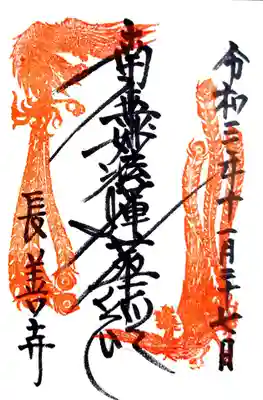 令和三年十一月二十七日
南無妙法蓮華経
長善寺